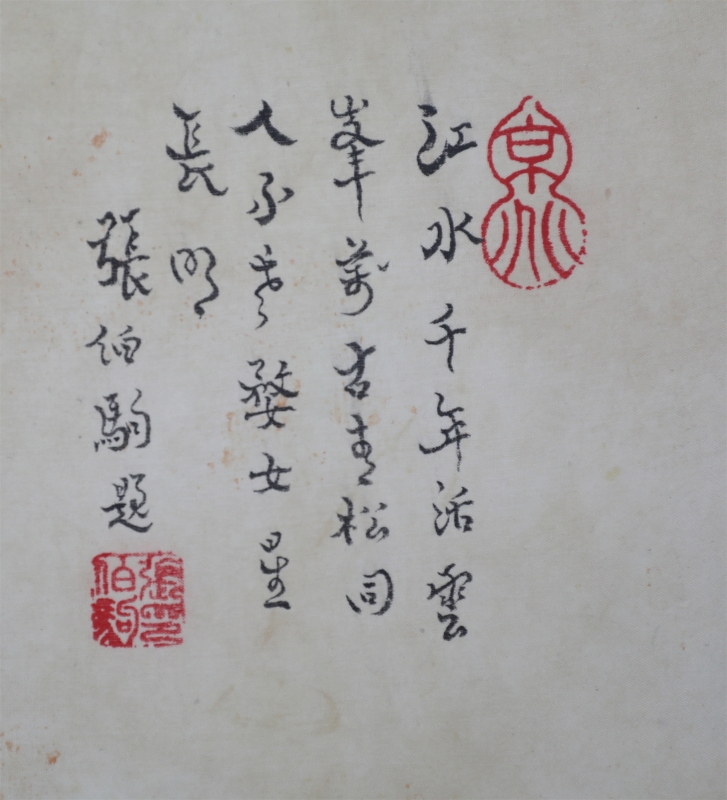 京兆
江水千年活雲
峯萬古青松同
人不老婺女星
長明
張伯駒題
張印
伯駒